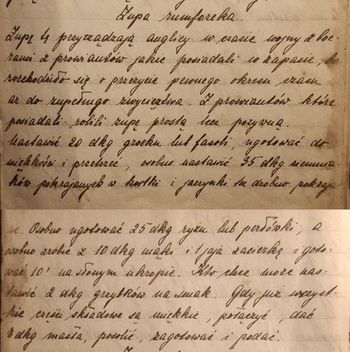 Zupa rumforcka
Zupę tę przyrządzają anglicy w czasie wojny z boe-
rami z prowiantów jakie posiadali w zapasie, bo
rozchodziło się o przeżycie pewnego okresu czasu
aż do zupełnego zwycięstwa. Z prowiantów które
posiadali robili zupę prostą lecz pożywną.
Nastawić 20 dkg grochu lub fasoli, ugotować do
miękkości i przetrzeć, osobno nastawić 35 dkg ziemnia-
ków pokrajanych w kostki i jarzynki też drobno pokraja-
ne. Osobno ugotować 25 dkg ryżu lub perłówki, a
osobno zrobić z 10 dkg mąki i 1 jaja zacierkę i goto-
wać 10' na słonym ukropie. Kto chce może nas-
tawić 2 dkg grzybków na smak. Gdy już wszyst-
kie części składowe są miękkie, połączyć, dać
3 dkg masła, posolić, zagotować i podać.